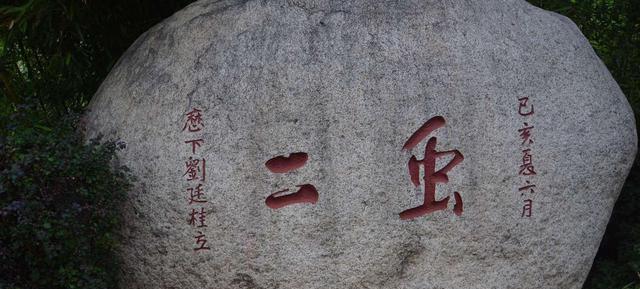 己亥夏六月
虫二
歷下劉廷桂立